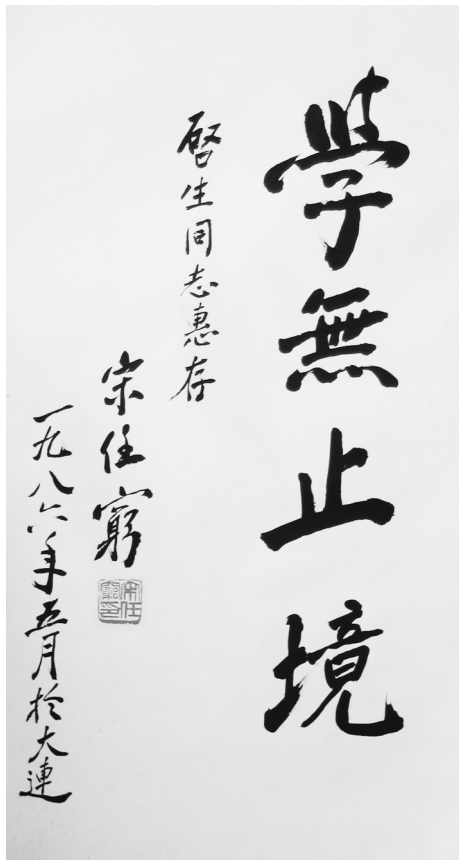 學無止境
啓生同志惠存
宋任窮
宋任窮印
一九八六年五月於大連